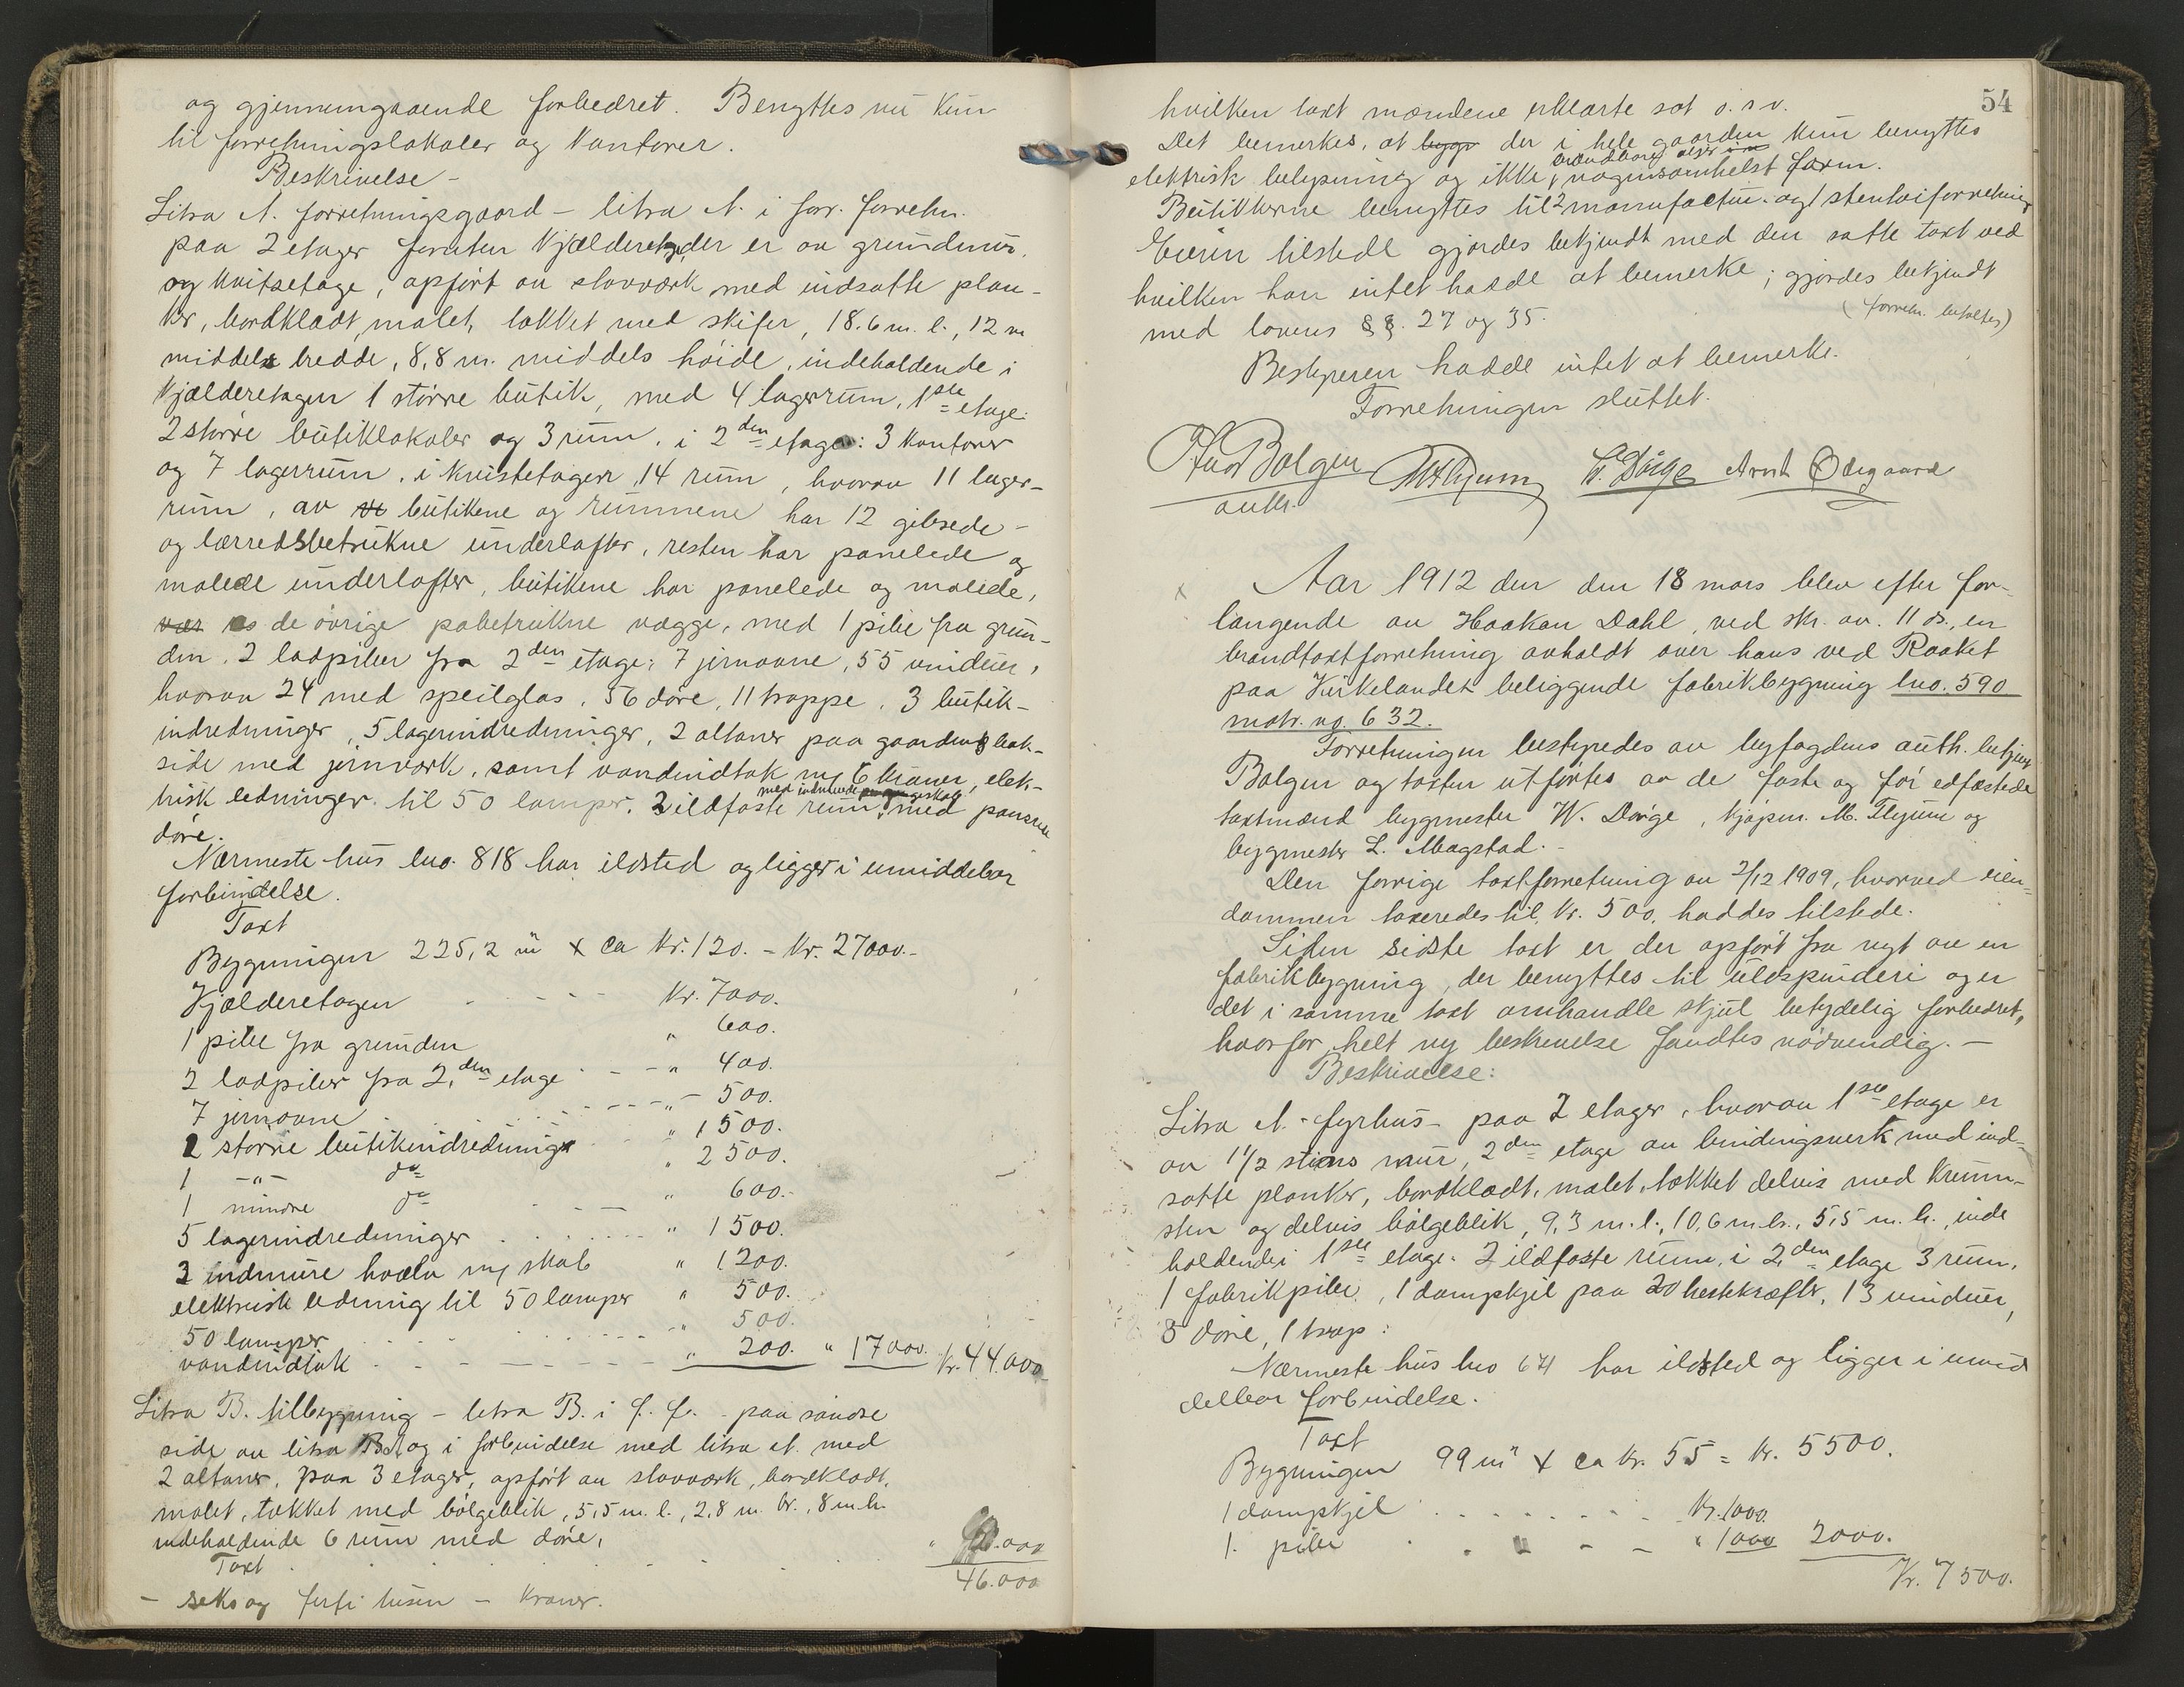 og gjennemgaaende forbedret. Benyttes nu kun
til forretningslokaler og kontorer.
Beskrivelse -
Litra A. forretningsgaard - litra A. i forr. forretn.
paa 2 etager foruten kjælderetage, der er av grundmur,
og kvistetage, opført av stavværk med indsatte plan-
ker, bordklædt, malet, tækket med skifer, 18.6 m. l., 12 m
middels bredde, 8,8 m. middels høide, indeholdende i
kjælderetagen 1 større butik, med 4 lagerrum, 1ste etage:
2 større butiklokaler og 3 rum, i 2den etage: 3 kontorer
og 7 lagerrum, i kvistetagen 14 rum, hvorav 11 lager-
rum, av butikene og rummene har 12 gibsede-
og lærredsbetrukne underlofter, resten har panelede og
malede underlofter, butikene har panelede og malede,
de øvrige pabetrukne vægge, med 1 pibe fra grun-
den, 2 ladpiber fra 2den etage, 7 jernovne, 55 vinduer,
hvorav 24 med speilglas, 56 døre, 11 trappe, 3 butik-
indredninger, 5 lagerindredninger, 2 altaner paa gaardens bak-
side med jernværk, samt vandindtak m/ 6 kraner, elek-
trisk ledninger til 50 lamper, 3 ildfaste rum med panser
døre.
Nærmeste hus lno. 818 har ildsted og ligger i umiddelbar
forbindelse.
Taxt
Bygningen 225,2 m² x ca kr. 120. - kr. 27000.-
Kjælderetagen kr. 7000.
1 pibe fra grunden " 600.
2 ladpiber fra 2.den etage " 400.
7 jernovne " 500.
2 større butikindredninger " 1500.
1 -"- do " 2500.
1 mindre do " 600.-
5 lagerindredninger " 1500.
3 indmure hvælv m/ skab " 1200.
elektrisk ledning til 50 lamper " 500.
50 lamper " 500.
vandindtak " 200. " 17000. kr. 44.000
Litra B. tilbygning - litra B. i f. f. - paa søndre
side av litra A og i forbindelse med litra A. med
2 altaner, paa 3 etager, opført av stavværk, bordklædt,
malet, tækket med bølgeblik, 5,5 m. l., 2,8 m. br., 8 m. h.
indeholdende 6 rum med døre,
Taxt " 2.000
46.000
- seks og førti tusen - kroner.
54
hvilken taxt mændene erklærte sat o.s.v.
Det bemerkes, at der i hele gaarden kun benyttes
elektrisk belysning og ikke brændbare oljer i nogensomhelst form.
Butikkerne benyttes til 2 manufactur- og 1 stentøiforretning
Eieren tilstede gjordes bekjendt med den satte taxt ved
hvilken han intet hadde at bemerke; gjordes bekjendt
med lovens §§. 27 og 35. (forretn. beholtes)
Bestyreren hadde intet at bemerke.
Forretningen sluttet.
Bolgen W. Dørge Arnt Ødegaard
auth.
x Aar 1912 den den 18 mars blev efter for-
langende av Haakon Dahl, ved skr. av. 11 ds., en
brandtaxtforretning avholdt over hans ved Raaket
paa Kirkelandet beliggende fabrikbygning lno. 590
matr. no. 632.
Forretningen bestyredes av byfogdens auth. betjent
Bolgen og taxten utførtes av de faste og før edfæstede
taxtmænd bygmester W. Dørge, kjøpm. M. Flyum og
bygmester L. Magstad. -
Den forrige taxtforretning av 2/12 1909, hvorved eien-
dommen taxeredes til kr. 500, haddes tilstede.
Siden sidste taxt er der opført fra nyt av en
fabrikbygning, der benyttes til uldspinderi og er
det i samme taxt omhandle skjul betydelig forbedret,
hvorfor helt ny beskrivelse fandtes nødvendig. -
Beskrivelse:
Litra A. - fyrhus - paa 2 etager, hvorav 1ste etage er
av 1 1/2 stens mur, 2den etage av bindingsverk med ind-
satte planker, bordklædt, malet, tækket delvis med krum-
sten og delvis bølgeblik, 9,3 m. l., 10,6 m. br., 5,5 m. h., inde
holdende i 1ste etage: 2 ildfaste rum, i 2den etage 3 rum,
1 fabrikpibe, 1 dampkjel paa 20 hestekræfter, 13 vinduer,
8 døre, 1 trap:
Nærmeste hus lno 671 har ildsted og ligger i umid
delbar forbindelse.
Taxt
Bygningen 99 m² x ca kr. 55 = kr. 5500.
1 dampkjel kr. 1000.
1. pibe " 1000 2000.
Kr. 7500.